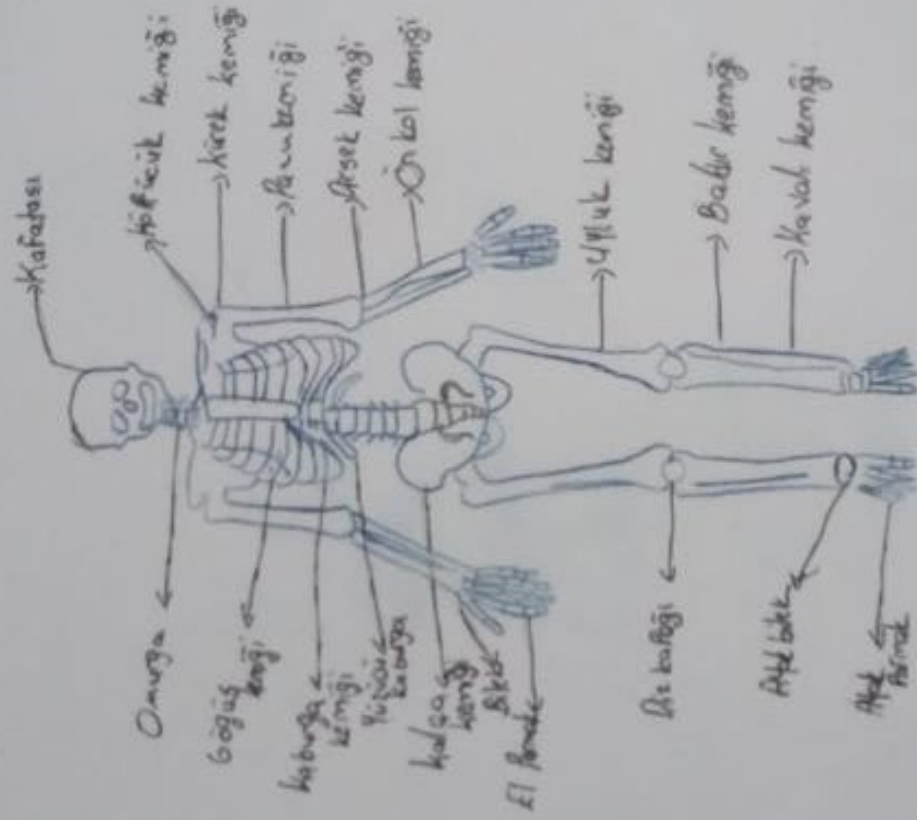 Kafatası
Köprücük kemiği
Kürek kemiği
Pazu kemiği
Dirsek kemiği
Ön kol kemiği
Uyluk kemiği
Baldır kemiği
Kaval kemiği
Omurga
Göğüs
kemiği
Kaburga
kemiği
Yüzücü
kaburga
Kalça
kemiği
Bilek
El Parmak
Diz kapağı
Ayak bilek
Ayak
Parmak